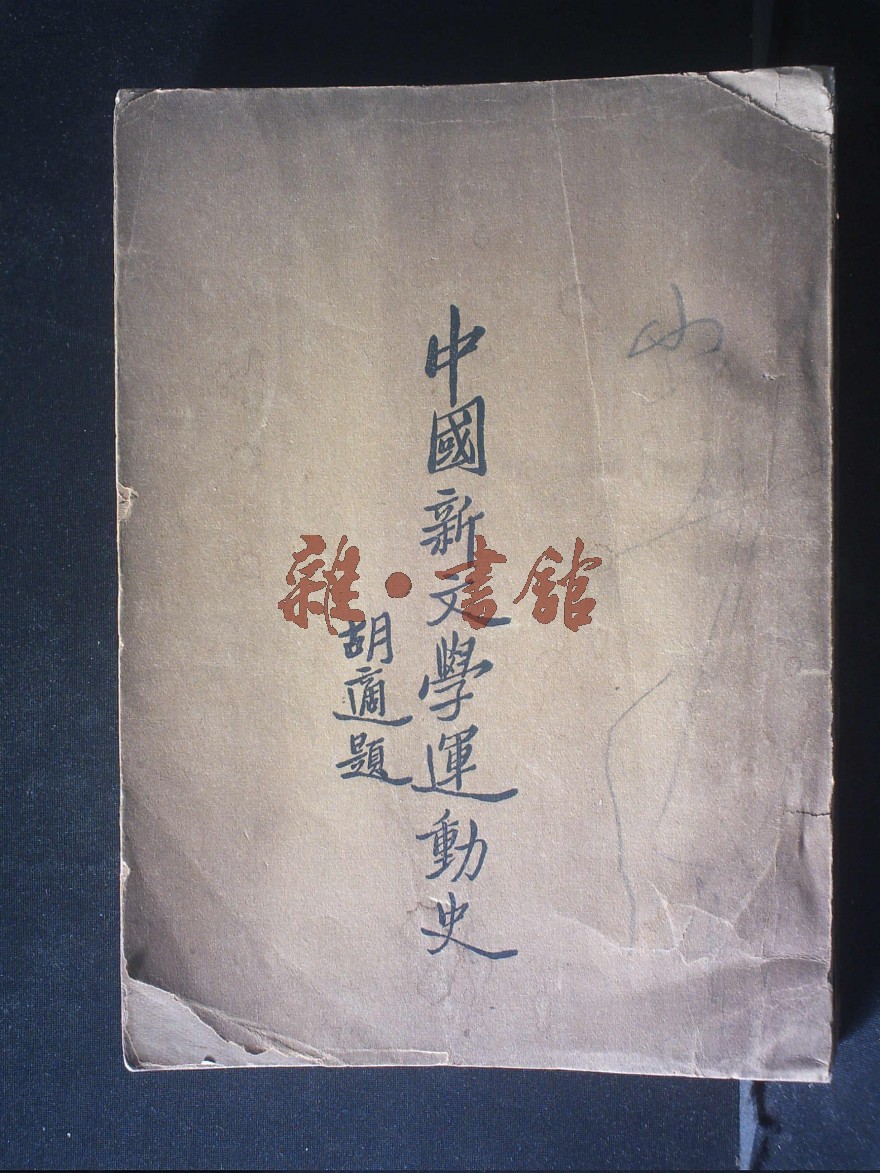 中國新文學運動史
胡適題
雜·書館